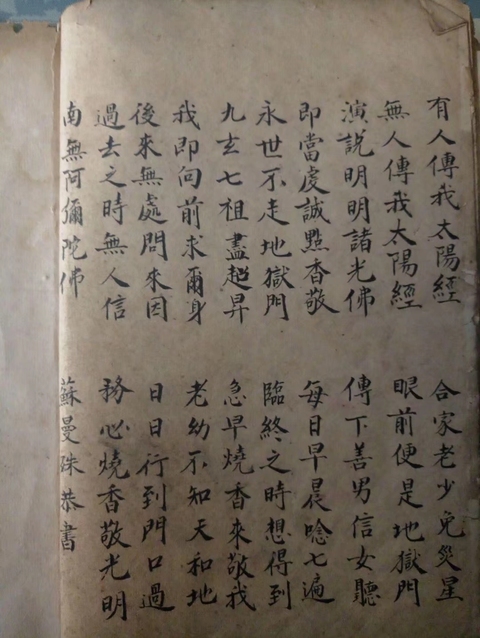 有人傳我太陽經　合家老少免災星
無人傳我太陽經　眼前便是地獄門
演說明明諸光佛　傳下善男信女聽
即當虔誠點香敬　每日早晨唸七遍
永世不走地獄門　臨終之時想得到
九玄七祖盡超昇　急早燒香來敬我
我即向前求爾身　老幼不知天和地
後來無處問來因　日日行到門口過
過去之時無人信　務必燒香敬光明
南無阿彌陀佛　蘇曼殊恭書